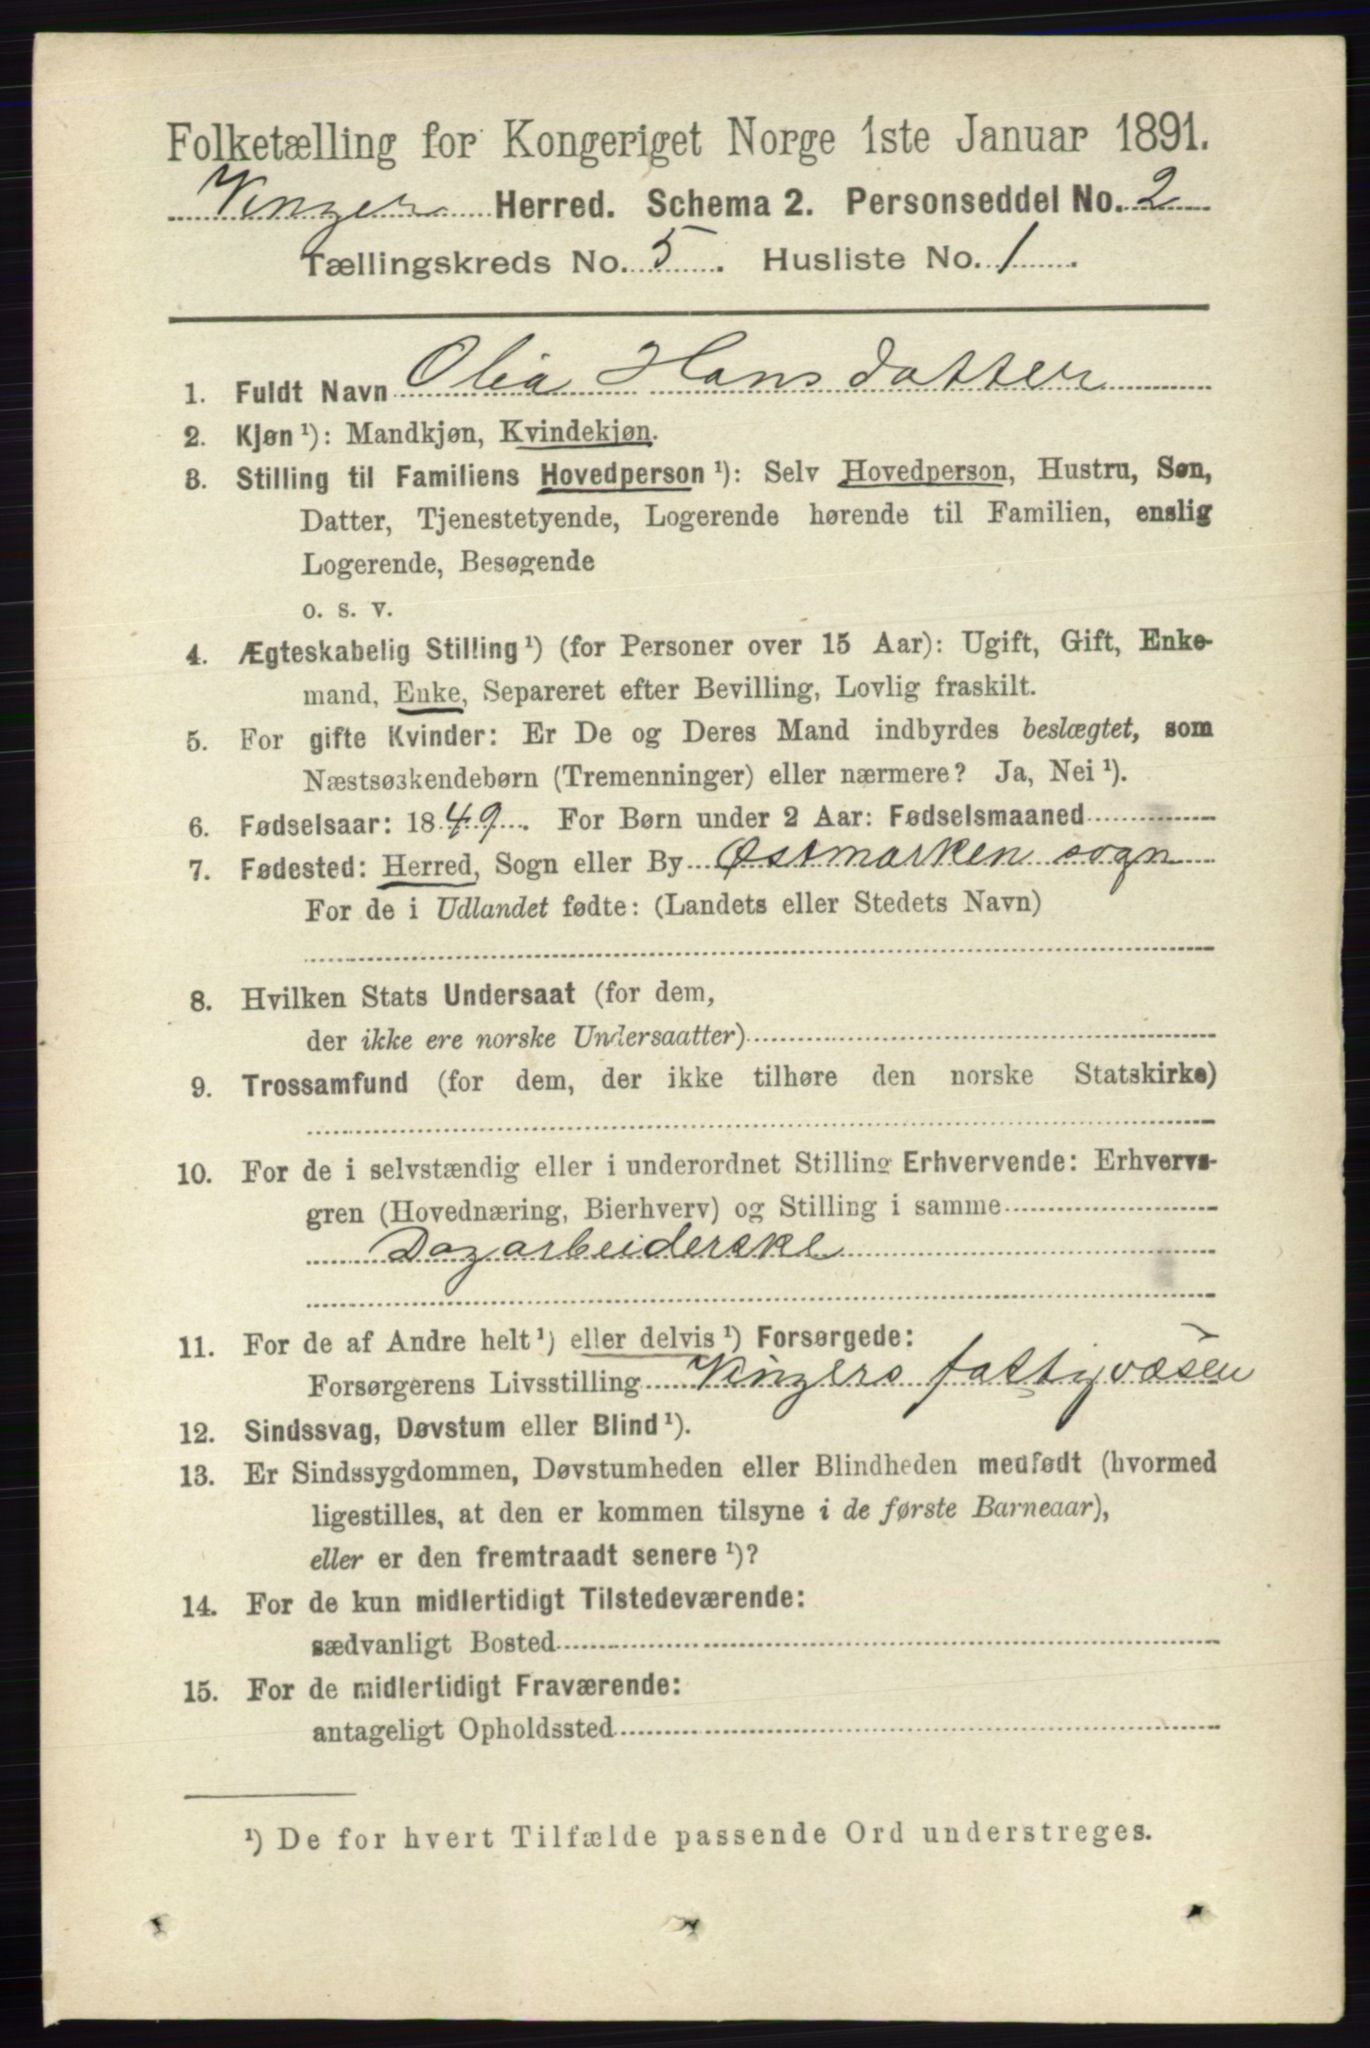 Folketælling for Kongeriget Norge 1ste Januar 1891.
Vinger Herred. Schema 2. Personseddel No. 2
Tællingskreds No. 5. Husliste No. 1.
1. Fuldt Navn Olea Hansdatter
2. Kjøn ¹): Mandkjøn, Kvindekjøn.
3. Stilling til Familiens Hovedperson ¹): Selv Hovedperson, Hustru, Søn,
Datter, Tjenestetyende, Logerende hørende til Familien, enslig
Logerende, Besøgende
o. s. v.
4. Ægteskabelig Stilling ¹) (for Personer over 15 Aar): Ugift, Gift, Enke-
mand, Enke, Separeret efter Bevilling, Lovlig fraskilt.
5. For gifte Kvinder: Er De og Deres Mand indbyrdes beslægtet, som
Næstsøskendebørn (Tremenninger) eller nærmere? Ja, Nei ¹).
6. Fødselsaar: 1849. For Børn under 2 Aar: Fødselsmaaned
7. Fødested: Herred, Sogn eller By Østmarken sogn
For de i Udlandet fødte: (Landets eller Stedets Navn)
8. Hvilken Stats Undersaat (for dem,
der ikke ere norske Undersaatter)
9. Trossamfund (for dem, der ikke tilhøre den norske Statskirke)
10. For de i selvstændig eller i underordnet Stilling Erhvervende: Erhvervs-
gren (Hovednæring, Bierhverv) og Stilling i samme
Dagarbeiderske
11. For de af Andre helt ¹) eller delvis ¹) Forsørgede:
Forsørgerens Livsstilling Vingers fattigvæsen
12. Sindssvag, Døvstum eller Blind ¹).
13. Er Sindssygdommen, Døvstumheden eller Blindheden medfødt (hvormed
ligestilles, at den er kommen tilsyne i de første Barneaar),
eller er den fremtraadt senere ¹)?
14. For de kun midlertidigt Tilstedeværende:
sædvanligt Bosted
15. For de midlertidigt Fraværende:
antageligt Opholdssted
¹) De for hvert Tilfælde passende Ord understreges.